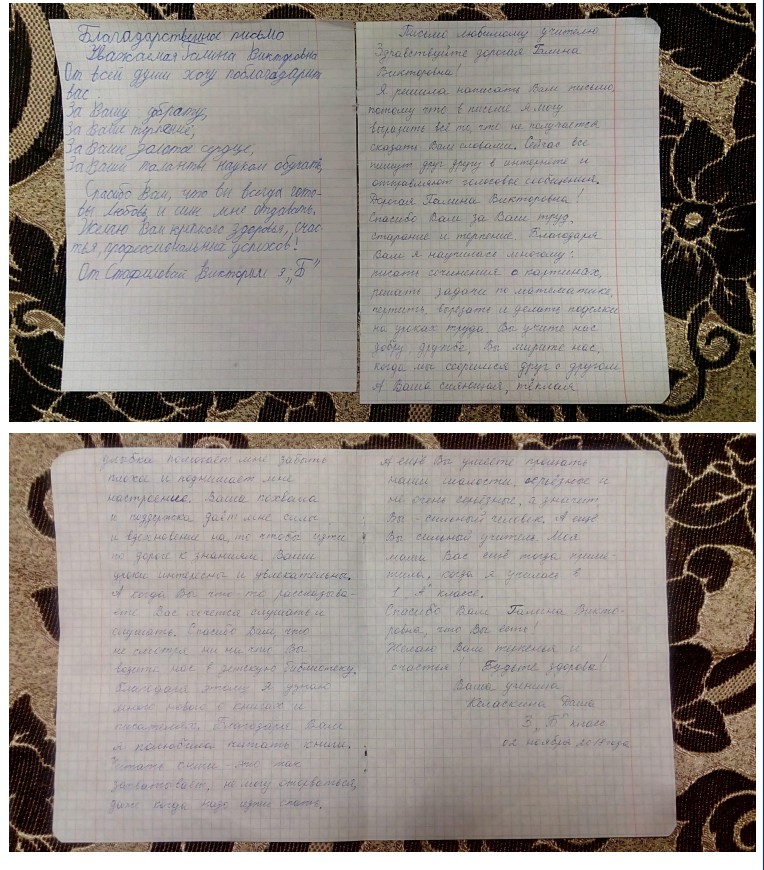 Благодарственное письмо
Уважаемая Галина Викторовна
От всей души хочу поблагодарить
вас:
За Вашу доброту,
За Ваше терпение,
За Ваше золотое сердце,
За Ваши таланты наукам обучать,
Спасибо Вам, что вы всегда гото-
вы любовь и силы мне отдавать.
Желаю Вам крепкого здоровья, счас-
тья, профессиональных успехов!
От Виктории 3 „Б"
Письмо любимому учителю
Здравствуйте дорогая Галина
Викторовна!
Я решила написать Вам письмо,
потому что в письме я могу
выразить всё то, что не получается
сказать Вам словами. Сейчас все
пишут друг другу в интернете и
отправляют голосовые сообщения.
Дорогая Галина Викторовна!
Спасибо Вам за Ваш труд,
старание и терпение. Благодаря
Вам я научилась многому:
писать сочинения о картинах,
решать задачи по математике,
чертить, вырезать и делать поделки
на уроках труда. Вы учите нас
добру, дружбе, Вы мирите нас,
когда мы ссоримся друг с другом
А Ваша сияющая, тёплая
улыбка помогает мне забыть
плохое и поднимает мне
настроение. Ваша похвала
и поддержка даёт мне силы
и вдохновение на то чтобы идти
по дороге к знаниям. Ваши
уроки интересны и увлекательны.
А когда Вы что-то рассказыва-
ете Вас хочется слушать и
слушать. Спасибо Вам, что
не смотря ни на что Вы
водите нас в детскую библиотеку.
Благодаря этому Я узнаю
много нового о книгах и
писателях. Благодаря Вам
я полюбила читать книги.
Читать книги - это так
захватывает, не могу оторваться,
даже когда надо идти спать.
А ещё Вы умеете прощать
наши шалости, серьёзные и
не очень серьёзные, а значит
Вы - сильный человек. А ещё
Вы сильный учитель. Моя
мама Вас ещё тогда приме-
тила, когда я училась в
1 „А" классе.
Спасибо Вам Галина Викто-
ровна, что Вы есть!
Желаю Вам терпенья и
счастья! Будьте здоровы!
Ваша ученица
Даша
3 „Б" класс
02 ноября 2017 года